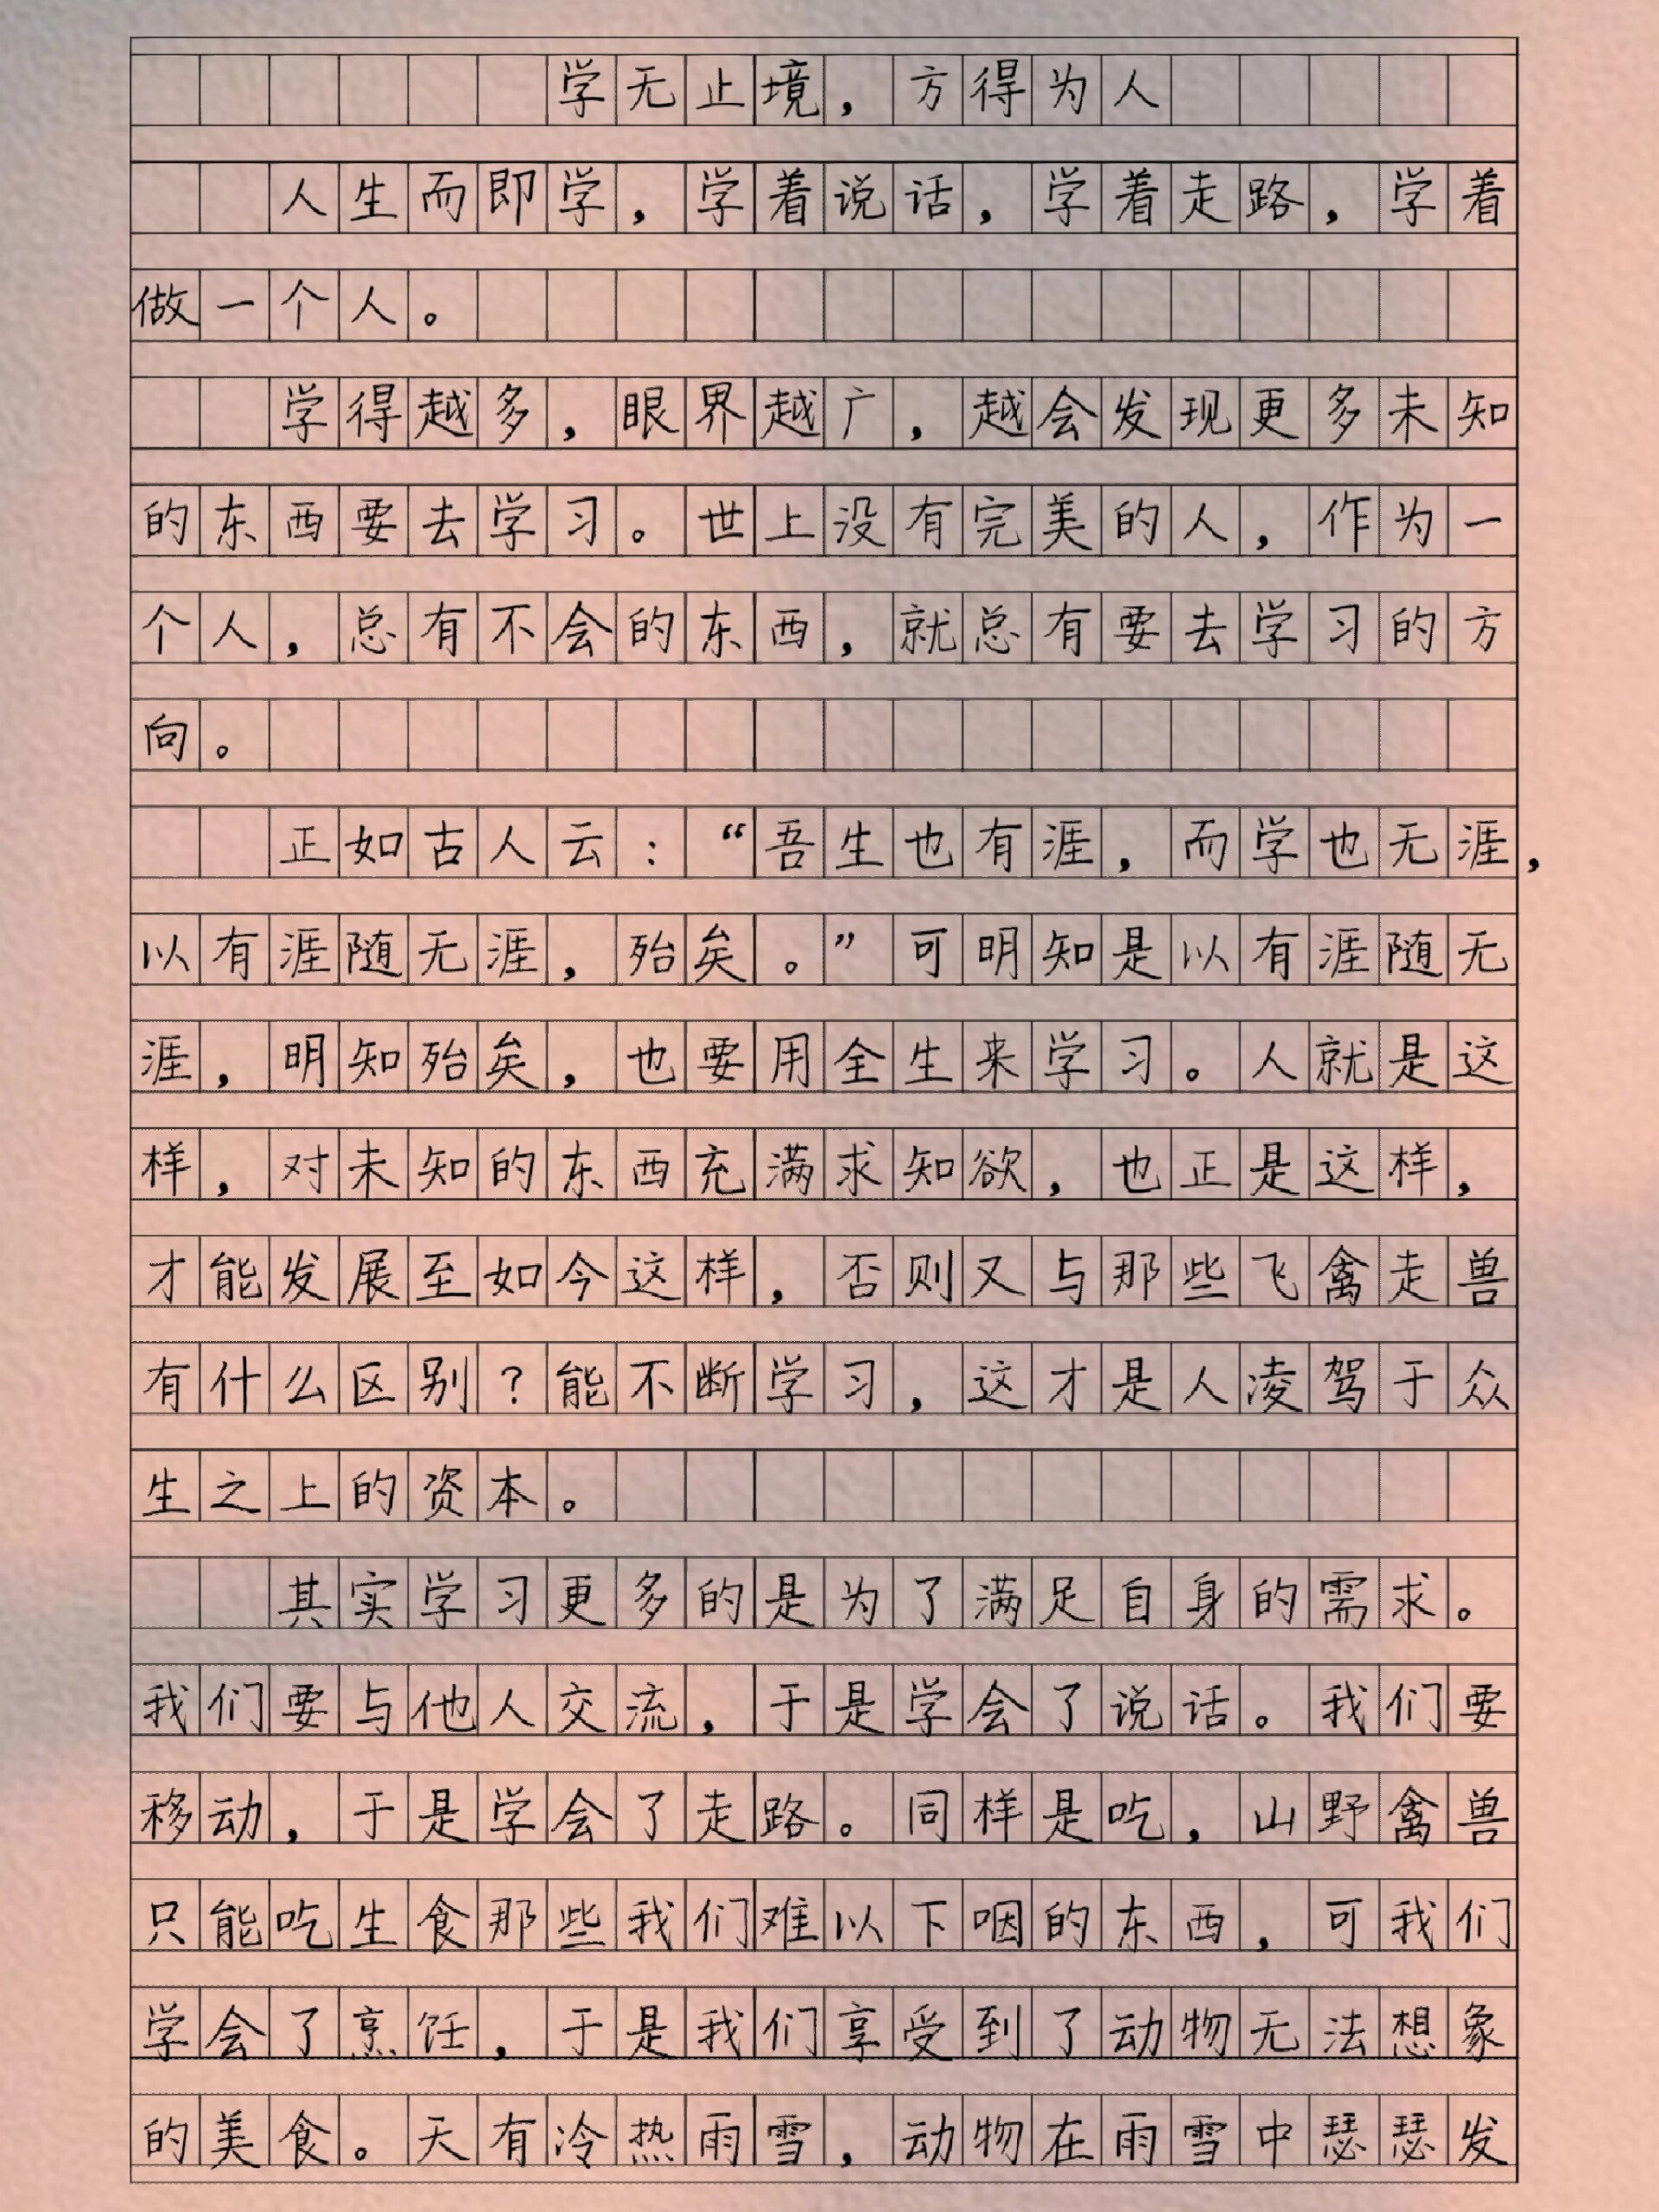 学无止境，方得为人
人生而即学，学着说话，学着走路，学着
做一个人。
学得越多，眼界越广，越会发现更多未知
的东西要去学习。世上没有完美的人，作为一
个人，总有不会的东西，就总有要去学习的方
向。
正如古人云：“吾生也有涯，而学也无涯，
以有涯随无涯，殆矣。”可明知是以有涯随无
涯，明知殆矣，也要用全生来学习。人就是这
样，对未知的东西充满求知欲，也正是这样，
才能发展至如今这样，否则又与那些飞禽走兽
有什么区别？能不断学习，这才是人凌驾于众
生之上的资本。
其实学习更多的是为了满足自身的需求。
我们要与他人交流，于是学会了说话。我们要
移动，于是学会了走路。同样是吃，山野禽兽
只能吃生食那些我们难以下咽的东西，可我们
学会了烹饪，于是我们享受到了动物无法想象
的美食。天有冷热雨雪，动物在雨雪中瑟瑟发